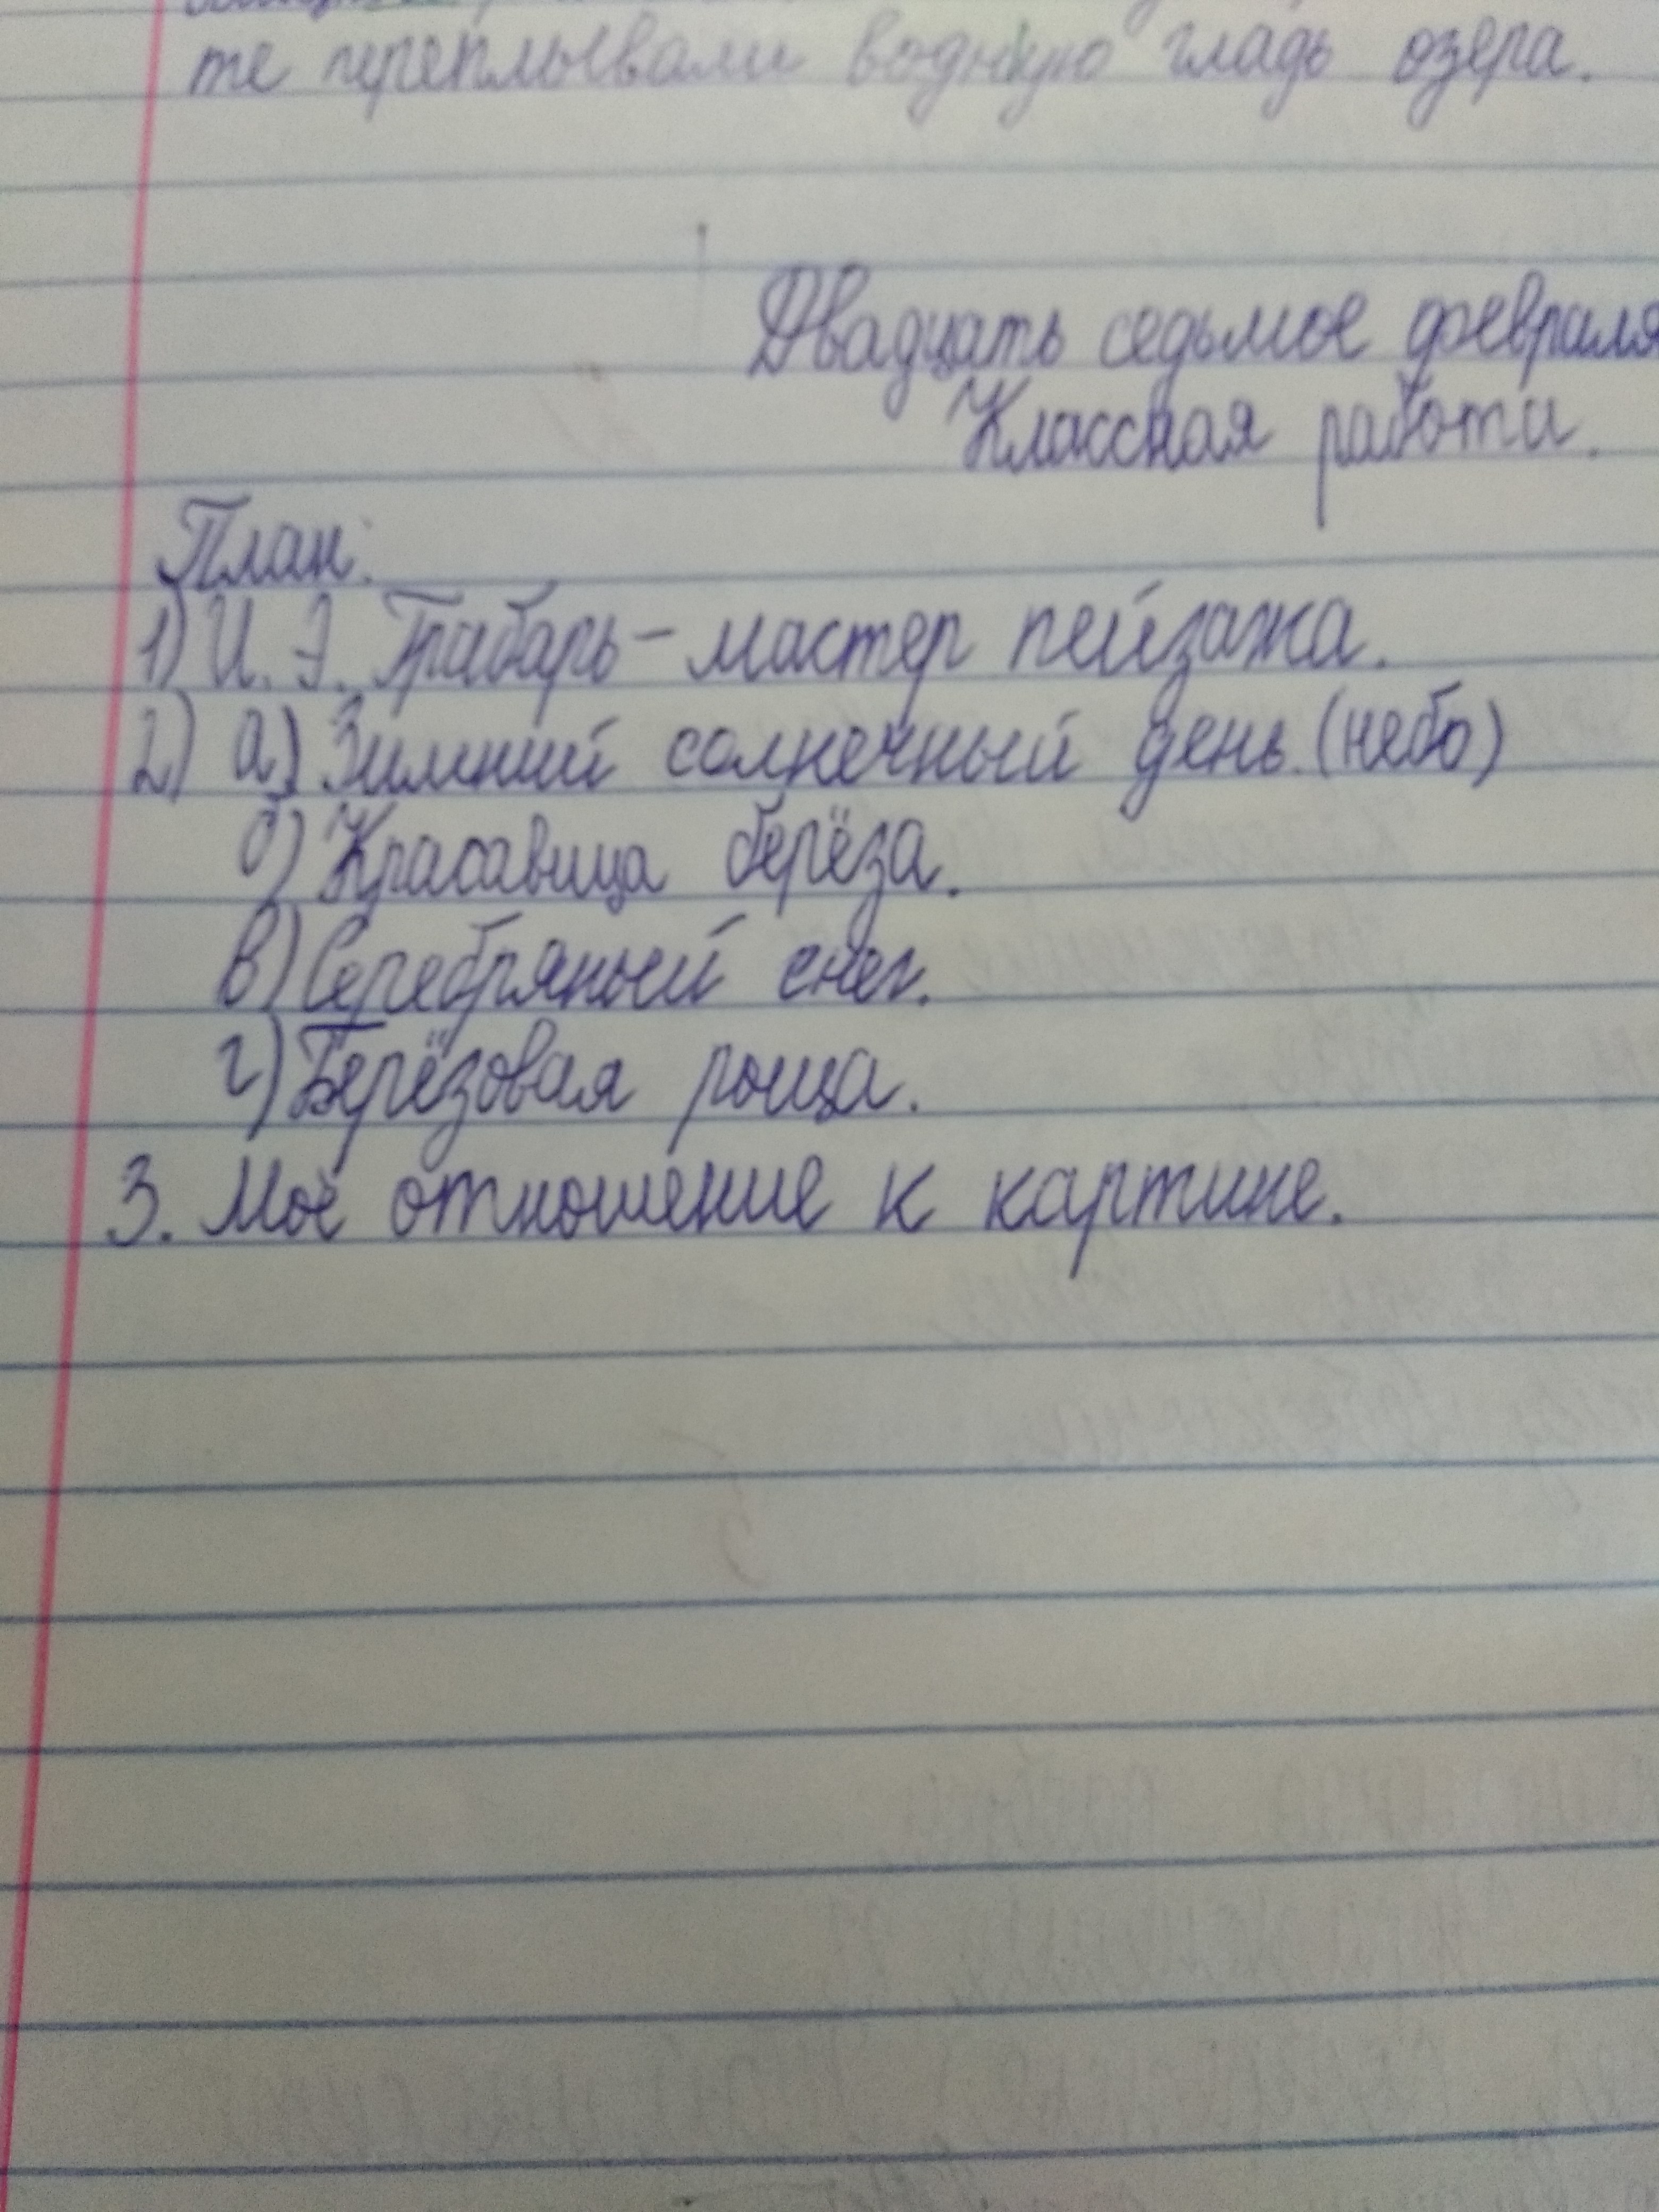 те переплывали водную гладь озера.
Двадцать седьмое февраля
Классная работа.
План:
1) И. Э. Грабарь – мастер пейзажа.
2) а) Зимний солнечный день. (небо)
б) Красавица берёза.
в) Серебряный снег.
г) Берёзовая роща.
3. Моё отношение к картине.